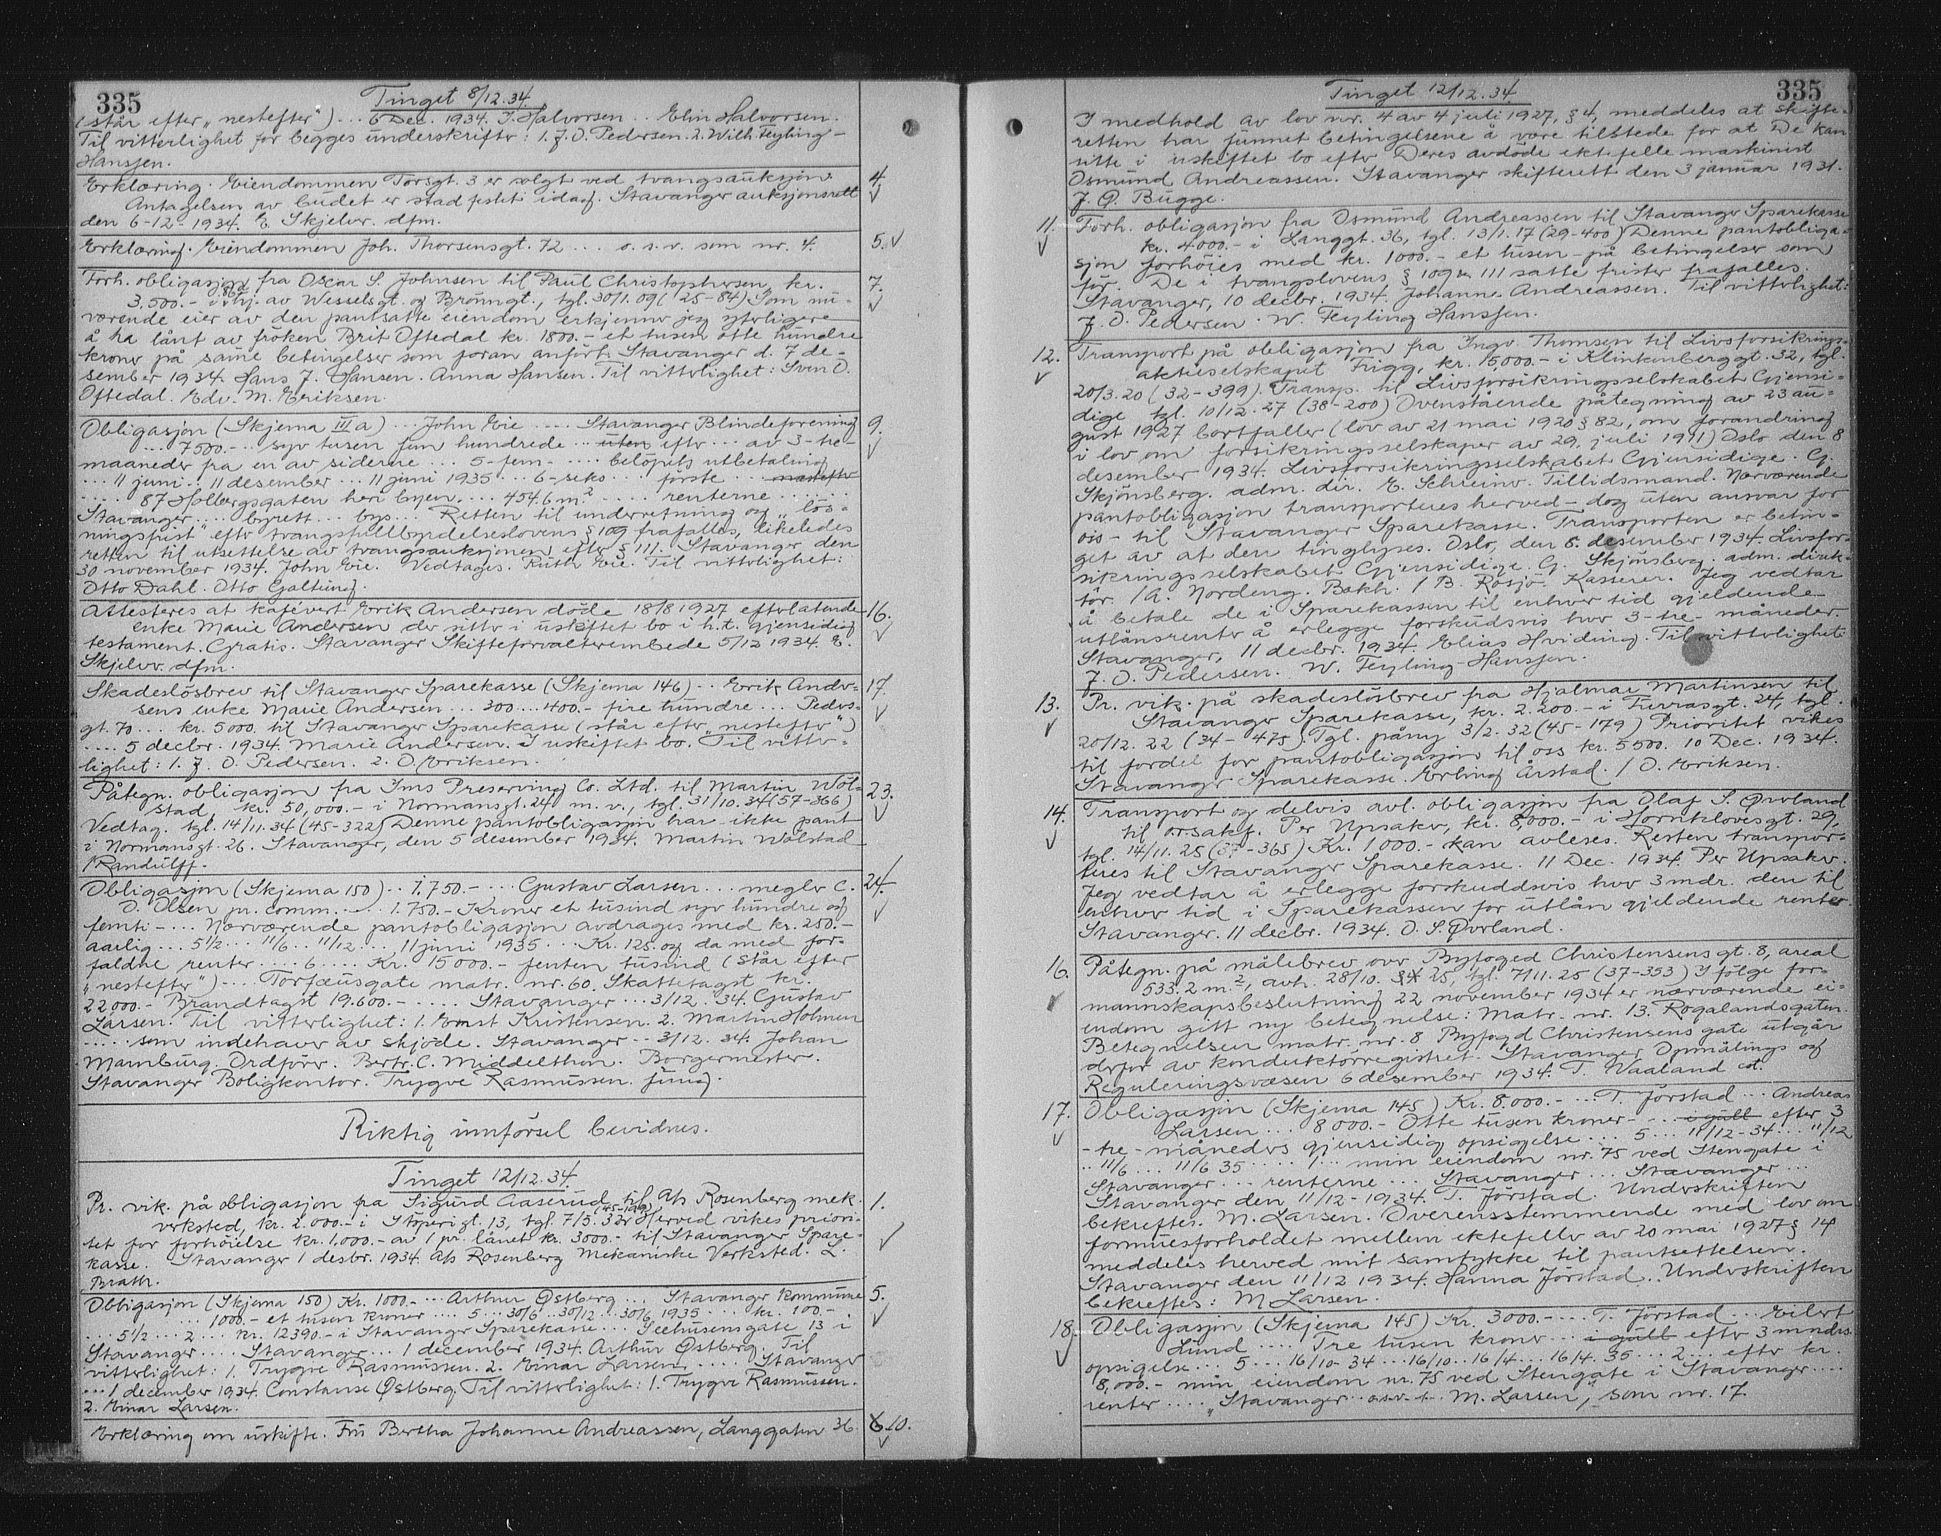 335
Tinget 8/12.34.
(står efter „nestefter") ... 6 Dec. 1934. J. Halvorsen... Elin Halvorsen.
Til vitterlighet for begges underskrifter: 1. J. O. Pedersen. 2. Wilh. Feyling-
Hanssen.
Erklæring. Eiendommen Torsgt. 3 er solgt ved tvangsauksjon. 4.
Antagelsen av budet er stadfestet idag. Stavanger auksjonsrett
den 6-12-1934. E. Skjelvr. dfm.
Erklæring. Eiendommen Joh. Thorsensgt. 72 .... o.s.v. som nr. 4. 5.
Forh. obligasjon fra Oscar S. Johnsen til Paul Christophersen, kr. 7.
3,500.- i hj. av Wesselsgt. og Brönngt., tgl. 30/1.09 (25-84) Som nu-
værende eier av den pantsatte eiendom erkjenner jeg yterligere
å ha lånt av fröken Brit Oftedal kr. 1800.- et tusen otte hundre
kroner på samme betingelser som foran anfört. Stavanger d. 7 de-
sember 1934. Hans J. Hansen. Anna Hansen. Til vitterlighet: Sven O.
Oftedal. Edv. M. Eriksen.
Obligasjon (Skjema III a) ... John Eie .... Stavanger Blindeforening 9.
... 7500.- ... syv tusen fem hundrede ... uten efter ... av 3-tre-
maaneder fra en av siderne ... 5-fem- .... belöpets utbetaling
... 11 juni .. 11 desember ... 11 juni 1935 ... 6-seks ... förste ... nestefter
..... 87 Holbergsgaten heri byen .... 454.6 m² ..... renterne ......
Stavanger .... byrett ... bys ... Retten til underretning og „lös-
ningsfrist" efter tvangsfullbyrdelseslovens § 109 frafalles, likeledes
retten til utsettelse av tvangsauksjonen efter § 111. Stavanger den
30 november 1934. John Eie. Vedtages. Ruth Eie. Til vitterlighet:
Otto Dahl. Otto Galtung.
Attesteres at kafévert Erik Andersen döde 18/8 1927 efterlatende 16.
enke Marie Andersen der sitter i uskiftet bo i h.t. gjensidig
testament. Gratis. Stavanger Skifteforvalterembede 5/12 1934. E.
Skjelvr. dfm.
Skadeslösbrev til Stavanger Sparekasse (Skjema 146) .. Erik Ander- 17.
sens enke Marie Andersen ... 300 ... 400.- fire hundre ... Peders-
gt. 70 ... kr. 5000. til Stavanger Sparekasse (står efter „nestefter")
..... 5 decbr. 1934. Marie Andersen. I uskiftet bo. Til vitter-
lighet: 1. J. O. Pedersen. 2. O. Eriksen.
Påtegn. obligasjon fra Ims Preserving Co. Ltd. til Martin Wol- 23.
stad, kr. 50,000.- i Normansgt. 24 m.v., tgl. 31/10.34 (57-366)
Vedtag. tgl. 14/11.34 (45-322) Denne pantobligasjon har ikke pant
i Normansgt. 26. Stavanger, den 5 desember 1934. Martin Wolstad
/Randulff.
Obligasjon (Skjema 150) .. 1.750.- ... Gustav Larsen ... megler C. 24.
O. Olsen pr. comm. .... 1.750.- Kroner et tusind syv hundre og
femti- ... Nærværende pantobligasjon avdrages med kr. 250.-
aarlig ... 5½ ... 11/6 .. 11/12 ... 11 juni 1935 ... Kr. 125. og da med for-
faldne renter .... 6 .... Kr. 15000.- femten tusind (står efter
„nestefter") .... Torfæusgate matr. nr. 60. Skattetagst kr.
22000.- Brandtagst 19.600.- ..... Stavanger ... 3/12. 34. Gustav
Larsen. Til vitterlighet: 1. Ernst Kristensen. 2. Martin Holmen
..... som indehaver av skjöde. Stavanger .. 3/12. 34. Johan
Mamburg. Ordförer. Bertr. C. Middelthon. Borgermester.
Stavanger Boligkontor. Trygve Rasmussen. fung.
Riktig innförsel bevidnes.
Tinget 12/12.34.
Pr. vik. på obligasjon fra Sigurd Aaserud til A/s Rosenberg mek. 1.
verksted, kr. 2.000.- i Stöperigt. 13, tgl. 7/5. 32 Herved vikes priori-
tet for forhöielse kr. 1,000.- av 1 pr. lånet kr. 3000.- til Stavanger Spare-
kasse. Stavanger 1 desbr. 1934. A/s Rosenberg Mekaniske Verksted. L.
Brath.
Obligasjon (Skjema 150) Kr. 1000.- ... Arthur Østberg ... Stavanger kommune 5.
... 1000.- et tusen kroner .... 5 .. 30/6 .. 30/12 .. 30/6 1935 ... kr. 100.-
... 5½ ... 2 ... kr. 12390.- i Stavanger Sparekasse .... Seehusensgate 13 i
Stavanger .... Stavanger ... 1 december 1934. Arthur Østberg. Til
vitterlighet: 1. Trygve Rasmussen. 2. Einar Larsen ..... Stavanger
... 1 december 1934. Constanse Østberg. Til vitterlighet: 1. Trygve Rasmussen.
2. Einar Larsen.
Erklæring om uskifte. Fru Bertha Johanne Andreassen, Langgaten 36. 10.
335
Tinget 12/12.34.
I medhold av lov nr. 4 av 4 juli 1927, § 4, meddeles at skifte-
retten har funnet betingelsene å være tilstede for at De kan
sitte i uskiftet bo efter Deres avdöde ektefelle maskinist
Osmund Andreassen. Stavanger skifterett den 3 januar 1931.
J. G. Bugge.
11. Forh. obligasjon fra Osmund Andreassen til Stavanger Sparekasse
kr. 4000.- i Langgt. 36, tgl. 13/1.17 (29-400) Denne pantobliga-
sjon forhöies med kr. 1000.- et tusen- på betingelser som
för. De i tvangslovens § 109 & 111 satte frister frafalles.
Stavanger, 10 decbr. 1934. Johanne Andreassen. Til vitterlighet:
J. O. Pedersen. W. Feyling Hanssen.
12. Transport på obligasjon fra Ingv. Thomsen til Livsforsikrings-
aktieselskapet Frigg, kr. 15,000.- i Klinkenberggt. 32, tgl.
20/3.20 (32-399). Transp. til Livsforsikringsselskabet Gjensi-
dige tgl. 10/12.27 (38-200) Ovenstående påtegning av 23 au-
gust 1927 bortfaller (lov av 21 mai 1920 § 82, om forandring
i lov om forsikringsselskaper av 29. juli 1911) Oslo den 8
desember 1934. Livsforsikringsselskabet Gjensidige. G.
Skjönsberg. adm. dir. E. Schreiner. Tillidsmand. Nærværende
pantobligasjon transporteres herved - dog uten ansvar for
ois - til Stavanger Sparekasse. Transporten er betin-
get av at den tinglyses. Oslo, den 8. desember 1934. Livsfor-
sikringsselskabet Gjensidige. G. Skjönsberg. adm. direk-
tör. /A. Nordeng. Bokh. / B. Rosjö. Kasserer. Jeg vedtar
å betale de i Sparekassen til enhver tid gjeldende
utlånsrenter å erlegge forskudsvis hver 3-tre- måneder.
Stavanger, 11 decbr. 1934. Elias Hviding. Til vitterlighet:
J. O. Pedersen. W. Feyling-Hanssen.
13. Pr. vik. på skadeslösbrev fra Hjalmar Martinsen til
Stavanger Sparekasse, kr. 2.200.- i Furrasgt. 24, tgl.
20/12.22 (34-475). Tgl. påny 3/2.32 (45-179) Prioritet vikes
til fordel for pantobligasjon til oss kr. 5500. 10 Dec. 1934.
Stavanger Sparekasse. Erling Årstad. / O. Eriksen.
14. Transport og delvis avl. obligasjon fra Olaf S. Øvrland
til orsakf. Per Upsaker, kr. 8,000.- i Hornklovesgt. 29,
tgl. 14/11.25 (37-365) Kr. 1000.- kan avleses. Resten transpor-
teres til Stavanger Sparekasse. 11 Dec. 1934. Per Upsaker.
Jeg vedtar å erlegge forskuddsvis hver 3 mdr. den til
enhver tid i Sparekassen for utlån gjeldende rente.
Stavanger. 11 decbr. 1934. O. S. Øvrland.
16. Påtegn. på målebrev over Byfoged Christensensgt. 8, areal
533.2 m², avh. 28/10. 25, tgl. 7/11.25 (37-353) I fölge for-
mannskapsbeslutning 22 november 1934 er nærværende ei-
endom gitt ny betegnelse: Matr. nr. 13. Rogalandsgaten.
Betegnelsen matr. nr. 8 Byfogd Christensens gate utgår
derfor av konduktörregistret. Stavanger Opmålings og
Reguleringsvæsen 6 desember 1934. T. Waaland cst.
17. Obligasjon (Skjema 145) Kr. 8.000.- ... T. Jörstad ... Andreas
Larsen ... 8000.- Otte tusen kroner- ... i gull efter 3
-tre- måneders gjensidig opsigelse ... 5 ... 11/12-34 ... 11/12
.. 11/6 ... 11/6 35 ..... 1 ... min eiendom nr. 75 ved Stengate i
Stavanger ... renterne ... Stavanger ... Stavanger ...
Stavanger den 11/12-1934. T. Jörstad. Underskriften
bekreftes. M. Larsen. Overensstemmende med lov om
formuesforholdet mellem ektefeller av 20 mai 1927 § 14
meddeles herved mit samtykke til pantsettelsen.
Stavanger den 11/12 1934. Hanna Jörstad. Underskriften
bekreftes: M Larsen.
18. Obligasjon (Skjema 145) Kr. 3000.- ... T. Jörstad ... Eilert
Lund .... Tre tusen kroner ... i gull efter 3 mndrs.
opsigelse ... 5 ... 16/10-34 ... 16/10 .. 16/4 ... 16/4. 35 ... 2 ... efter kr.
8,000.- min eiendom nr. 75 ved Stengate i Stavanger ....
renter .... „Stavanger o.s.v. M. Larsen", som nr. 17.